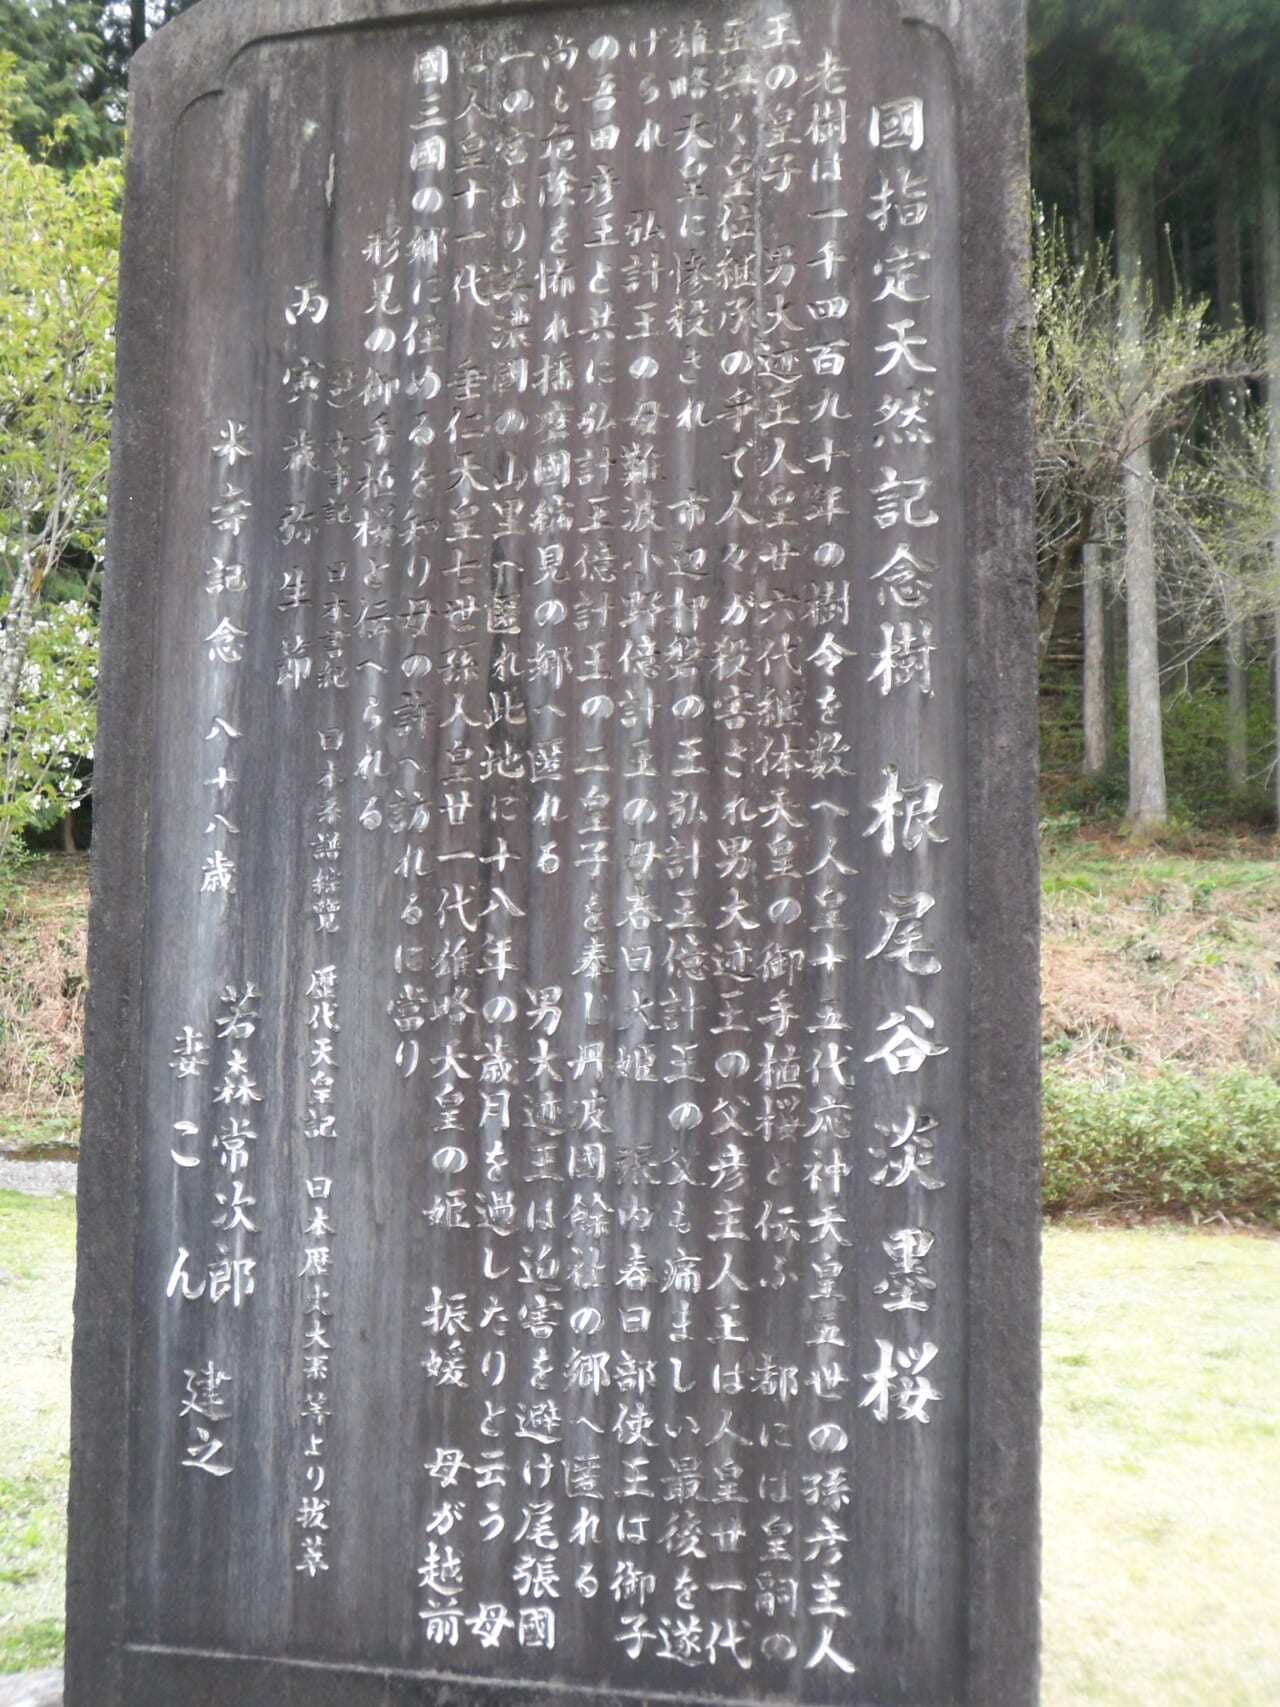 國指定天然記念樹 根尾谷淡墨桜
老樹は一千四百九十年の樹令を数へ人皇十五代応神天皇五世の孫彦主人
王の皇子 男大迹王人皇廿六代継体天皇の御手植桜と伝ふ 都には皇嗣の
王無く皇位継承の争で人々が殺害され男大迹王の父彦主人王は人皇廿一代
雄略天皇に惨殺され 市辺押磐の王弘計王億計王の父も痛ましい最後を遂
げられ 弘計王の母難波小野億計王の母春日大姫 張内春日部使王は御子
の吾田彦王と共に弘計王億計王の二皇子を奉じ丹波國餘社の郷へ匿れる
尚も危険を怖れ播磨國縮見の郷へ匿れる 男大迹王は迫害を避け尾張國
一の宮より美濃國の山里へ匿れ此地に十八年の歳月を過したりと云う 母
は人皇十一代 垂仁天皇七世孫人皇廿一代雄略天皇の姫 振媛 母が越前
國三國の郷に住めるを知り母の許へ訪れるに當り
形見の御手植桜と伝へられる
古事記 日本書記 日本系譜綜覽 歴代天皇記 日本歴史大系等より抜萃
丙寅歳弥生節
米寺記念 八十八歳 若森常次郎 建之
妻 こん